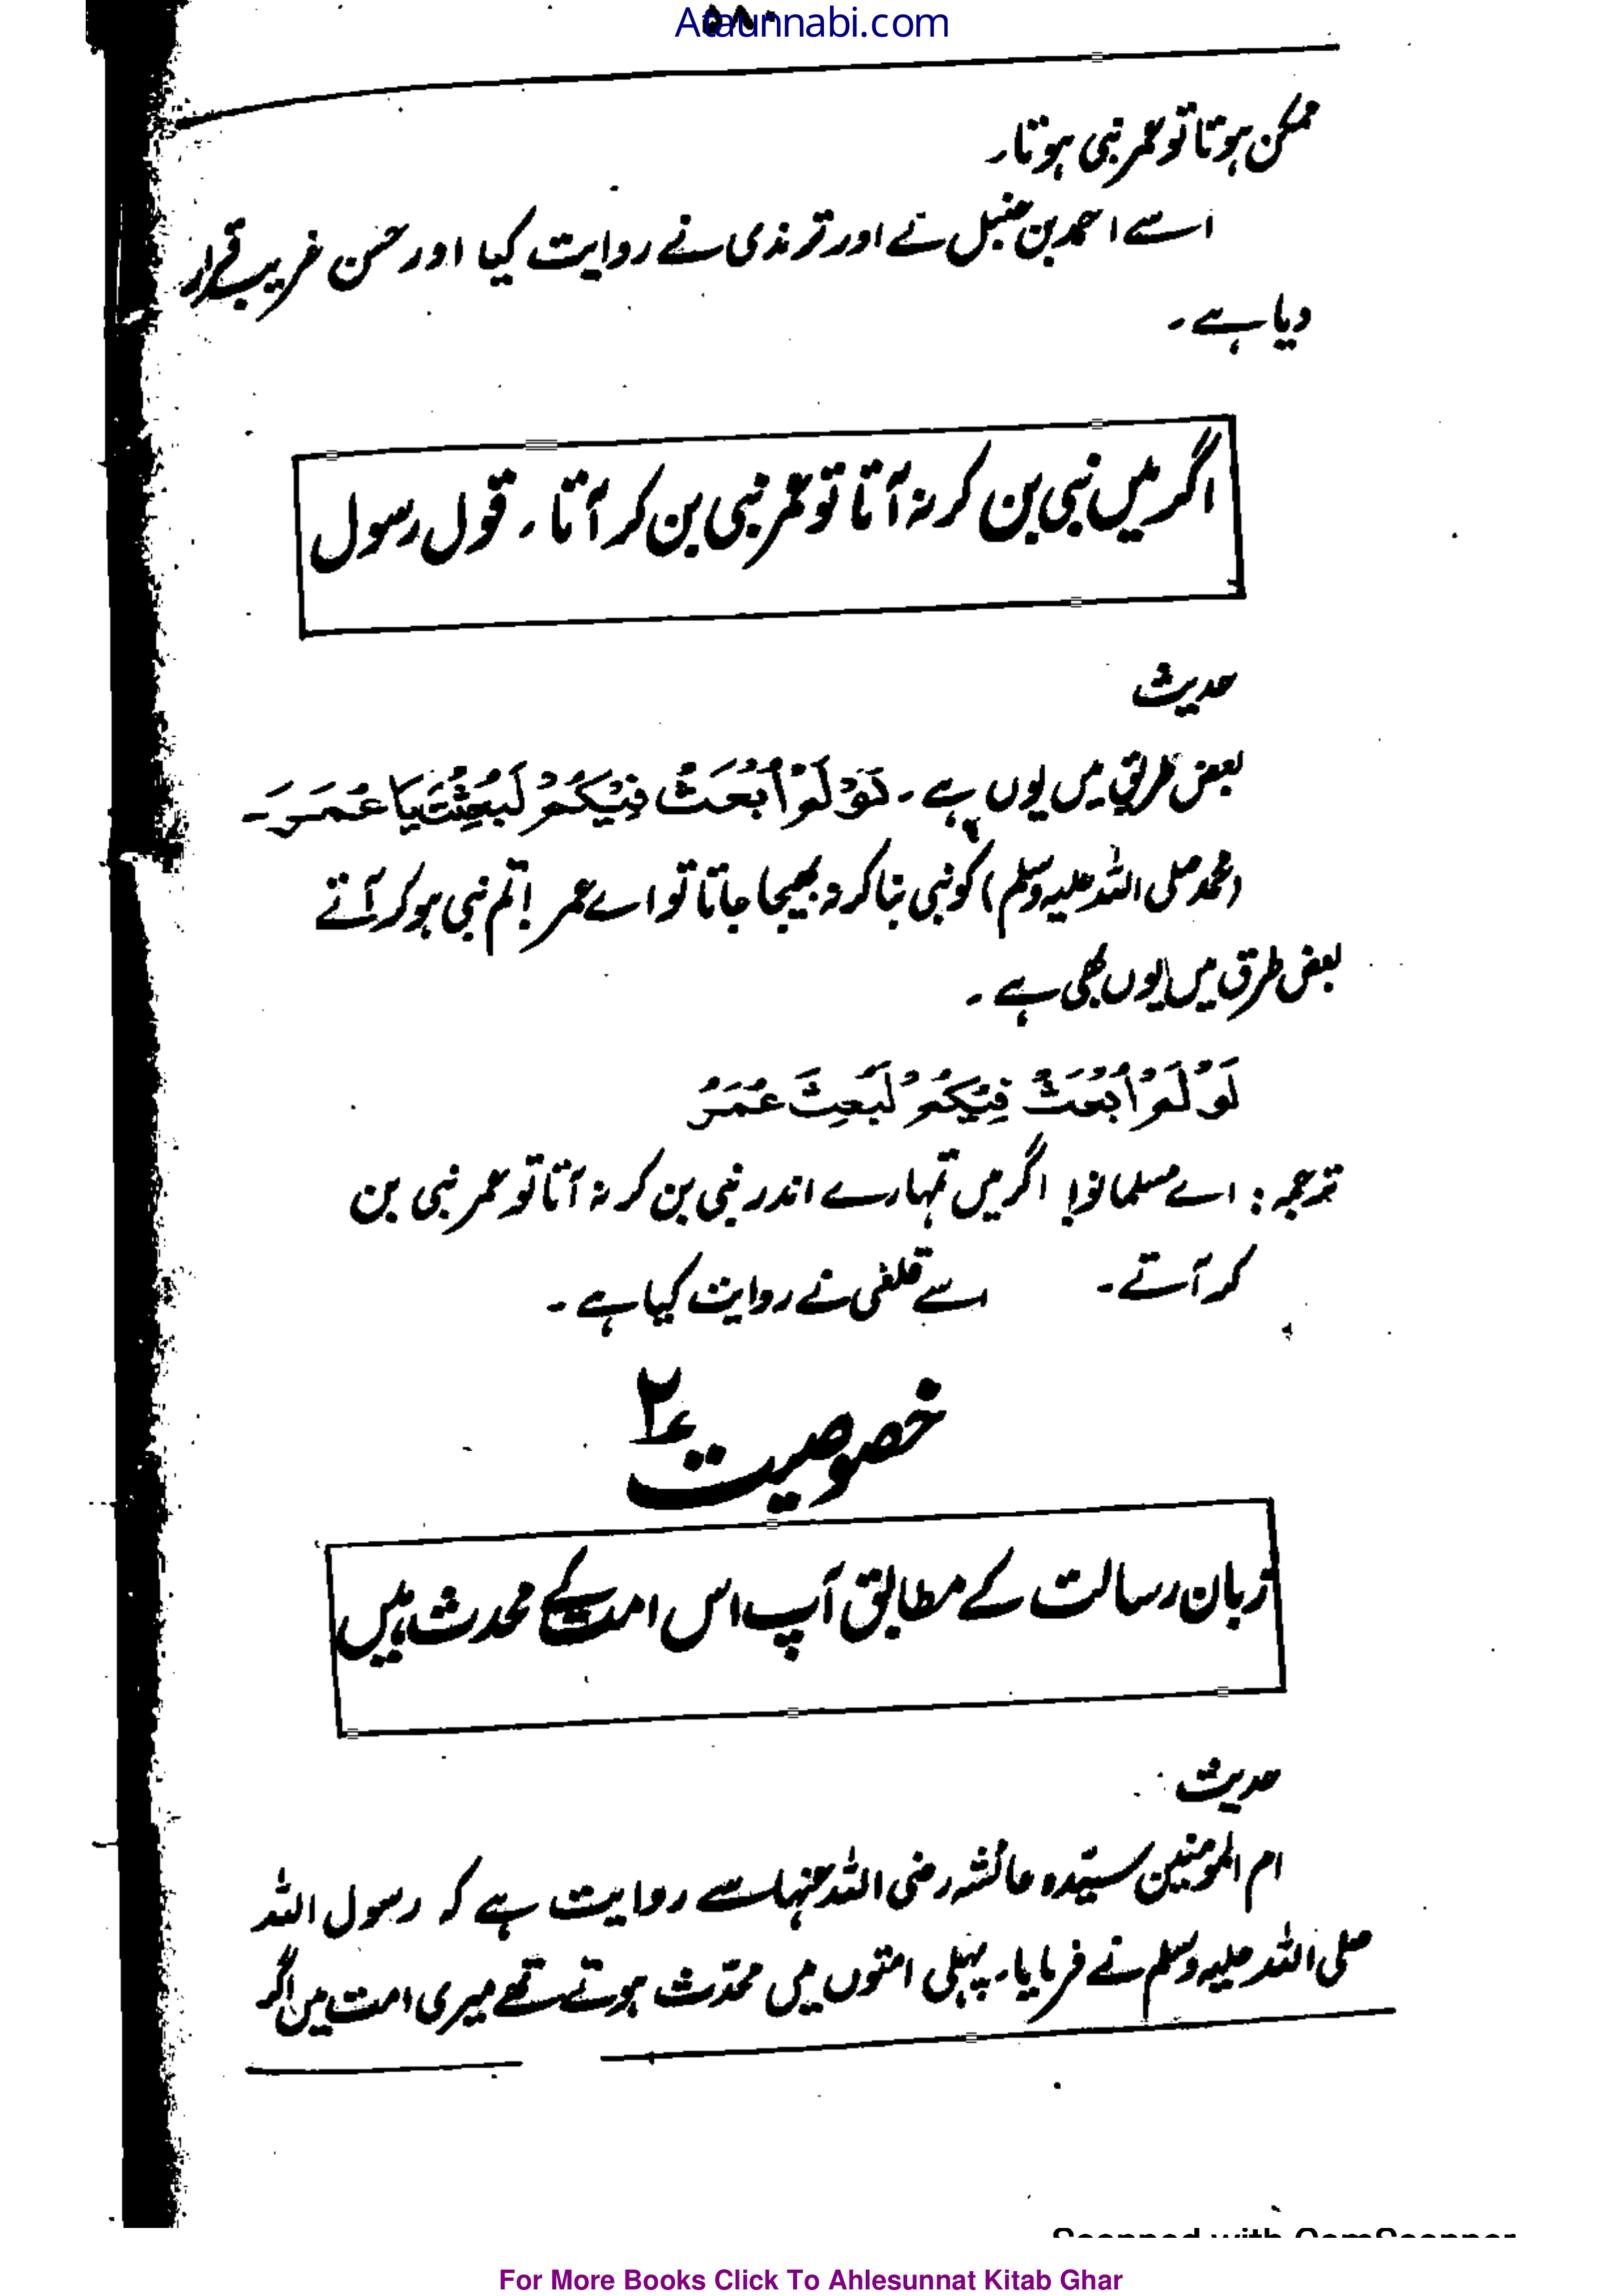 Ataunnabi.com
۵۸۰
ممکن ہوتا تو عمر نبی ہوتا۔
اسے احمد بن حنبل نے اور ترمذی نے روایت کیا اور حسن غریب قرار
دیا ہے۔
اگر میں نبی بن کر نہ آتا تو عمر نبی بن کر آتا۔ قول رسول
حدیث
بعض طریق میں یوں ہے۔ لَوْ لَمْ اُبْعَثْ فِیْکُمْ لَبُعِثْتَ یَا عُمَرَ۔
(محمد صلی اللہ علیہ وسلم) کو نبی بنا کر نہ بھیجا جاتا تو اے عمر! تم نبی ہو کر آتے
بعض طرق میں یوں بھی ہے۔
لَوْ لَمْ اُبْعَثْ فِیْکُمْ لَبُعِثَ عُمَرُ
ترجمہ: اے مسلمانو! اگر میں تمہارے اندر نبی بن کر نہ آتا تو عمر نبی بن
کر آتے۔ اسے قلعی نے روایت کیا ہے۔
خصوصیت ۲
زبان رسالت کے مطابق آپ اس امت کے محدث ہیں
حدیث
ام المومنین سیّدہ عائشہ رضی اللہ عنہا سے روایت ہے کہ رسول اللہ
صلی اللہ علیہ وسلم نے فرمایا۔ پہلی امتوں میں محدّث ہوتے تھے میری امت میں اگر
Scanned with CamScanner
For More Books Click To Ahlesunnat Kitab Ghar